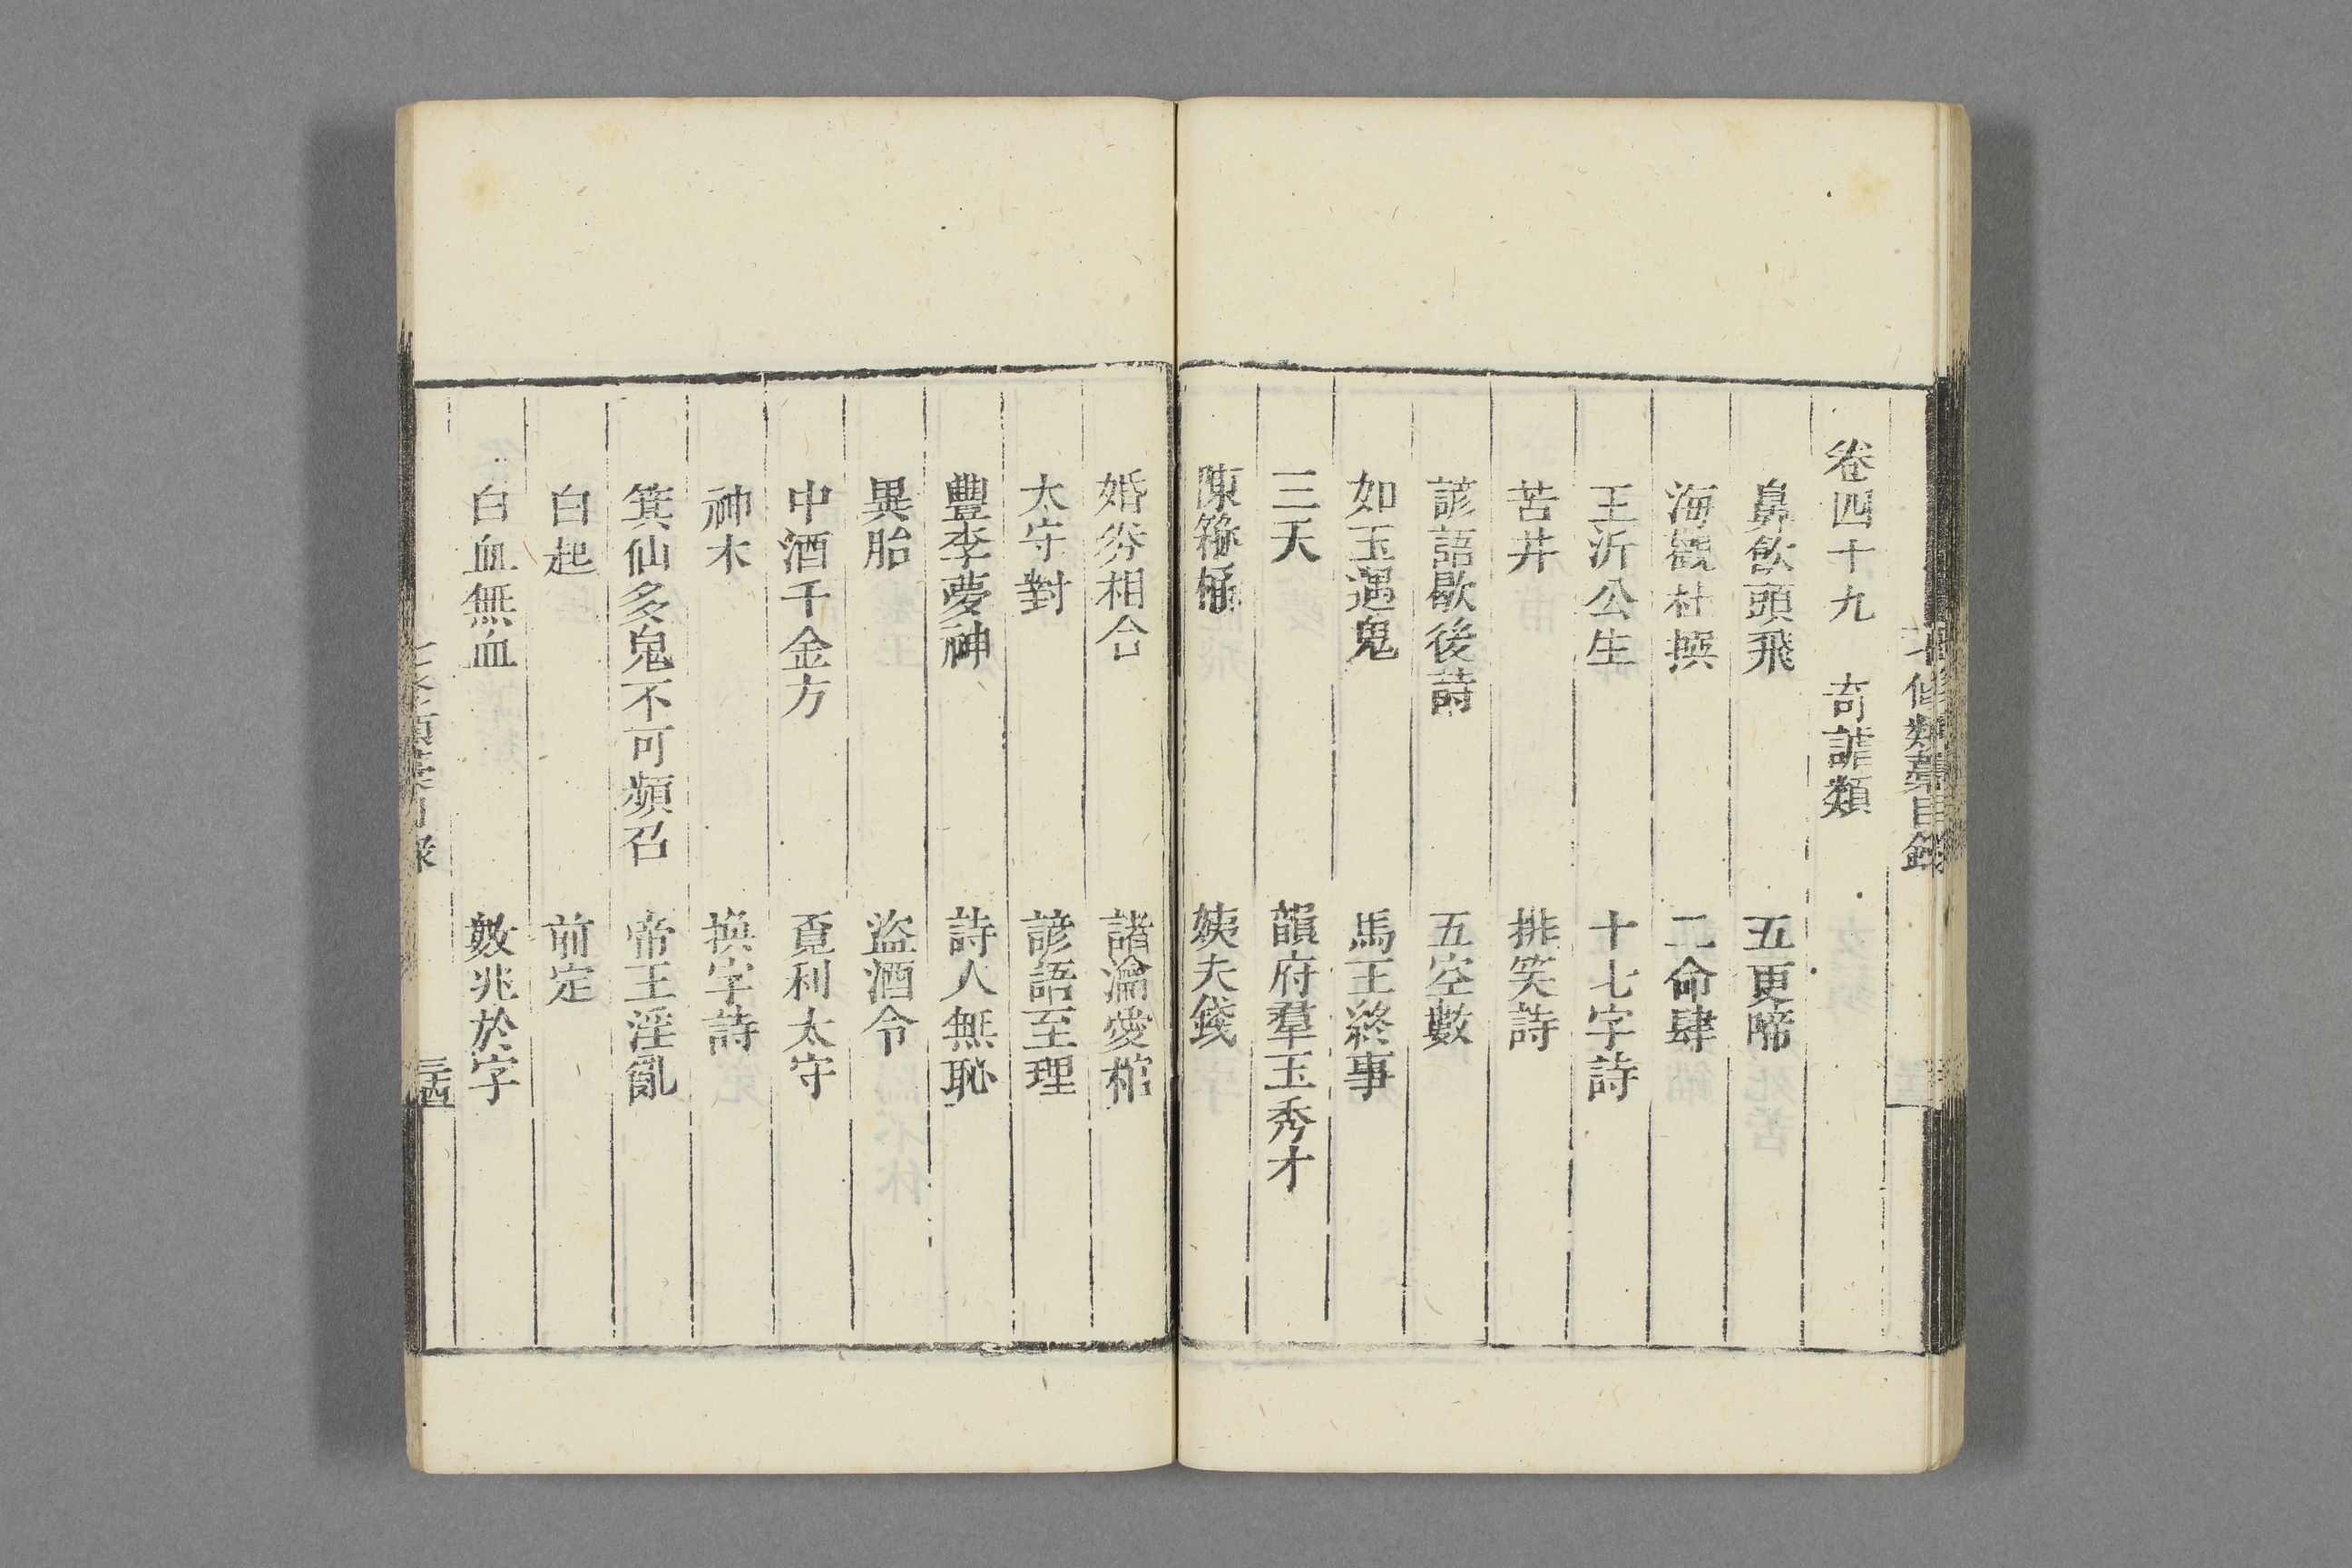 七修類藁目錄
卷四十九 奇謔類
鼻飲頭飛 五更啼
海觀杜撰 二命肆
王沂公生 十七字詩
苦井 排笑詩
諺語歇後詩 五空數
如玉遇鬼 馬王終事
三天 韻府羣玉秀才
陳 姨夫錢
婚券相合 諸瀹愛棺
太守對 諺語至理
豐李夢神 詩人無恥
異胎 盜酒令
中酒千金方 覔利太守
神木 換字詩
箕仙多鬼不可頻召 帝王淫亂
白起 前定
白血無血 數兆於字